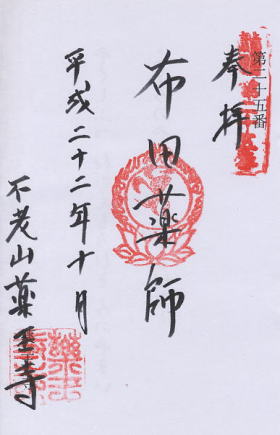 第二十五番
奉拝
布田薬師
平成二十二年十月
不老山薬王寺